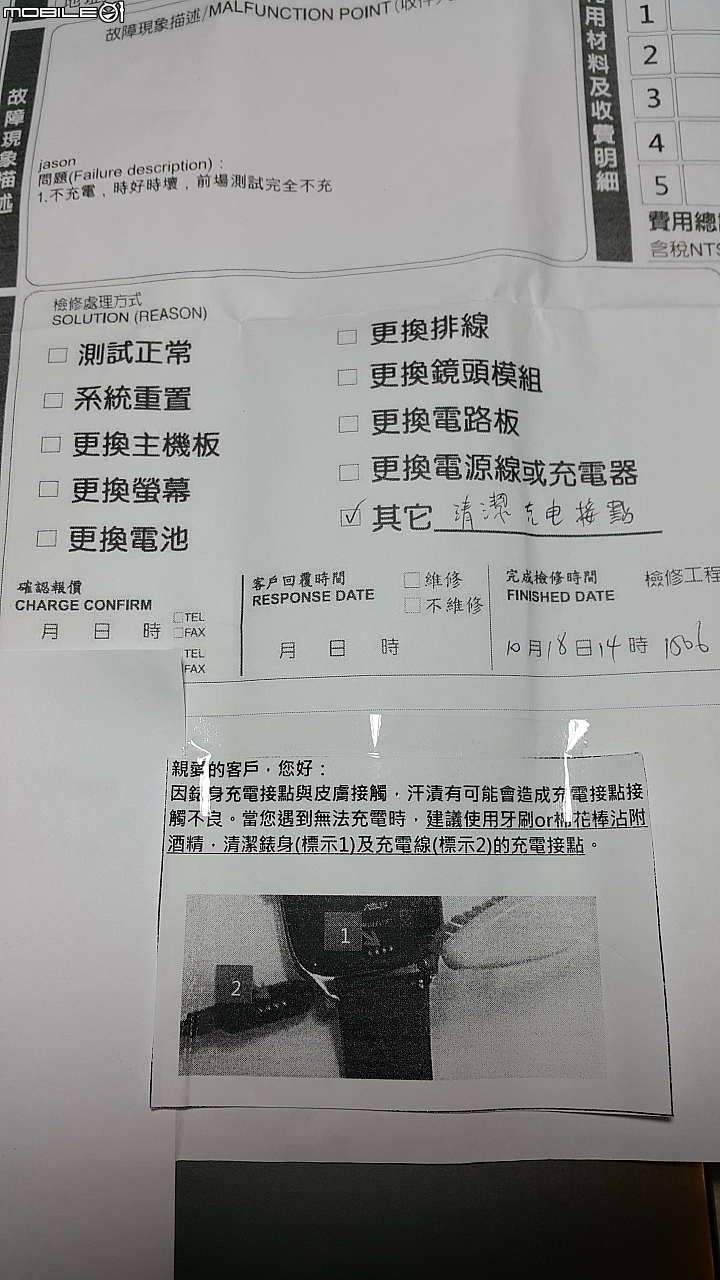 MOBILE01
故障現象描述/MALFUNCTION POINT
故障現象描述
用材料及收費明細
1
2
3
4
5
費用總
含稅NT$
jason
問題(Failure description)：
1.不充電，時好時壞，前場測試完全不充
檢修處理方式
SOLUTION (REASON)
□ 測試正常
□ 系統重置
□ 更換主機板
□ 更換螢幕
□ 更換電池
□ 更換排線
□ 更換鏡頭模組
□ 更換電路板
□ 更換電源線或充電器
☑ 其它 清潔充电接點
確認報價
CHARGE CONFIRM
月 日 時
□TEL
□FAX
TEL
FAX
客戶回覆時間
RESPONSE DATE
□維修
□不維修
月 日 時
完成檢修時間
FINISHED DATE
10月18日14時
檢修工程
親愛的客戶，您好：
因錶身充電接點與皮膚接觸，汗漬有可能會造成充電接點接
觸不良。當您遇到無法充電時，建議使用牙刷or棉花棒沾附
酒精，清潔錶身(標示1)及充電線(標示2)的充電接點。
ASUS
1
2